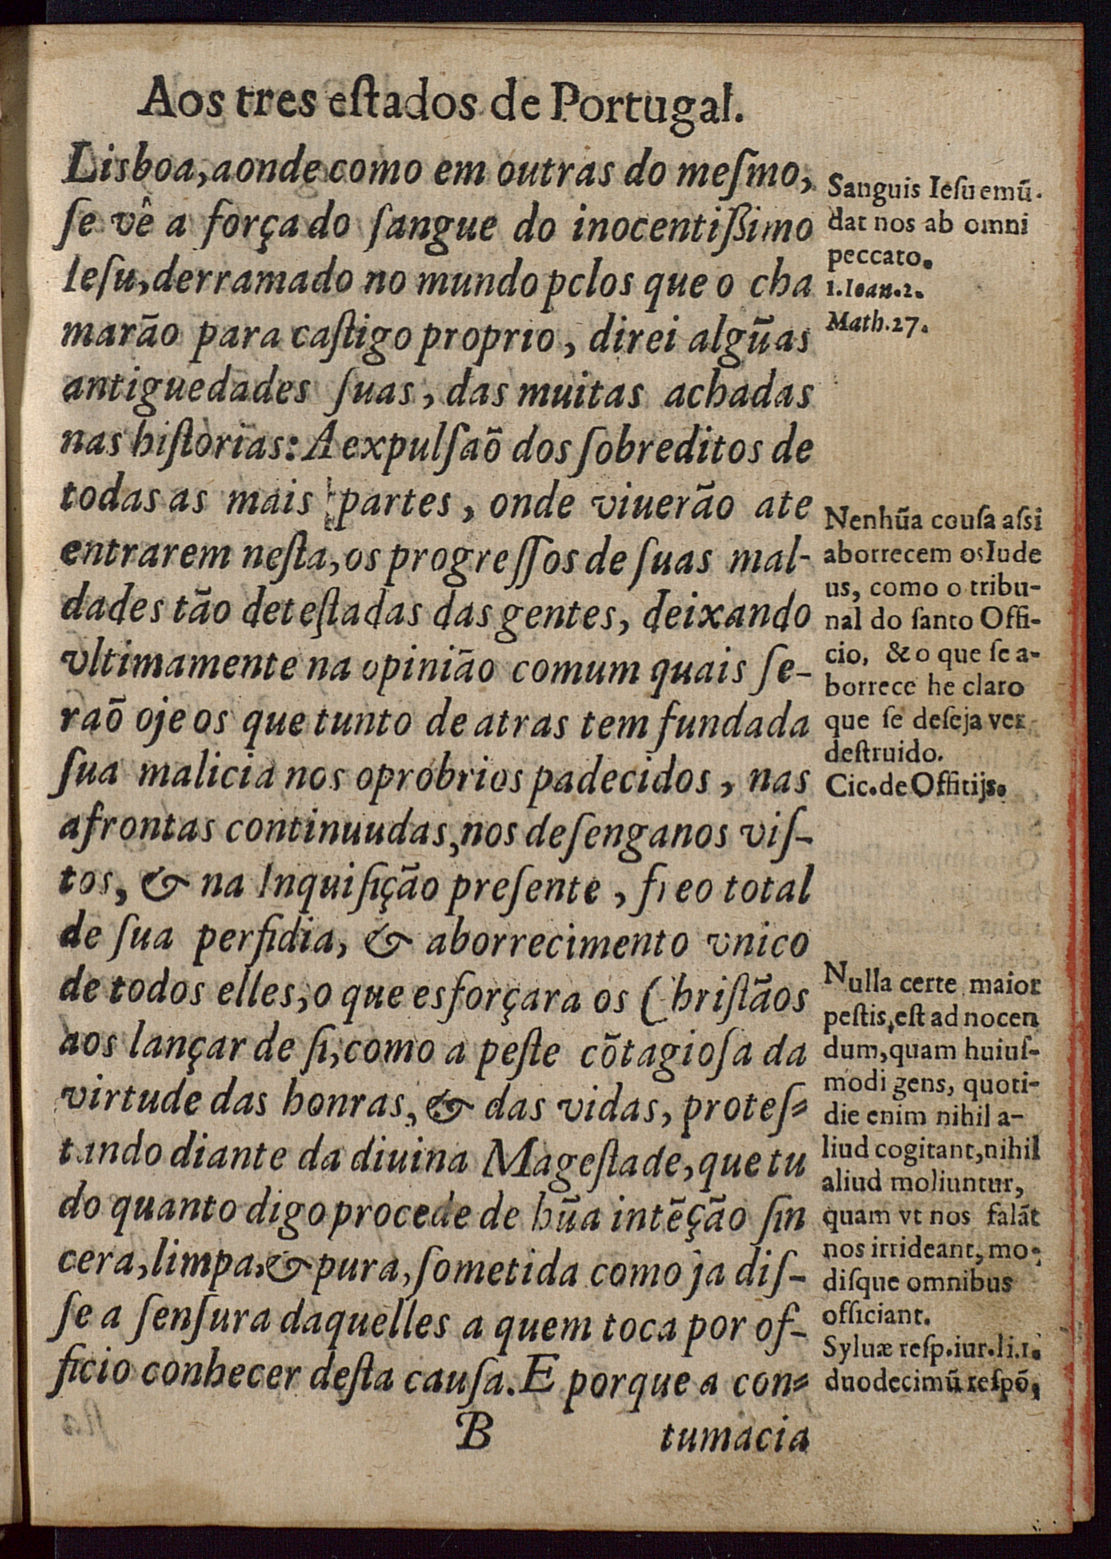 Aos tres eſtados de Portugal.
Lisboa, aonde como em outras do meſmo,
ſe vê a força do ſangue do inocentiſsimo
Ieſu, derramado no mundo pelos que o cha
marão para caſtigo proprio, direi algũas
antiguedades ſuas, das muitas achadas
nas hiſtorias: A expulſaõ dos ſobreditos de
todas as mais partes, onde viuerão ate
entrarem neſta, os progreſſos de ſuas mal-
dades tão deteſtadas das gentes, deixando
vltimamente na opinião comum quais ſe-
raõ oje os que tunto de atras tem fundada
ſua malicia nos oprobrios padecidos, nas
afrontas continuudas, nos deſenganos viſ-
tos, & na Inquiſição preſente, freo total
de ſua perfidia, & aborrecimento vnico
de todos elles, o que esforçara os Chriſtãos
aos lançar de ſi, como a peſte cõtagioſa da
virtude das honras, & das vidas, proteſ-
tando diante da diuina Mageſtade, que tu
do quanto digo procede de hũa intẽção ſin
cera, limpa, & pura, ſometida como ja diſ-
ſe a ſenſura daquelles a quem toca por of-
ficio conhecer deſta cauſa. E porque a con-
B tumacia
Sanguis Ieſu emũ-
dat nos ab omni
peccato.
1.Ioan.2.
Math.27.
Nenhũa couſa aſsi
aborrecem os Iude
us, como o tribu-
nal do ſanto Offi-
cio, & o que ſe a-
borrece he claro
que ſe deſeja ver
deſtruido.
Cic.de Offitijs.
Nulla certe maior
peſtis, eſt ad nocen
dum, quam huiuſ-
modi gens, quoti-
die enim nihil a-
liud cogitant, nihil
aliud moliuntur,
quam vt nos falãt
nos irrideant, mo-
diſque omnibus
officiant.
Syluæ reſp.iur.li.1.
duodecimũ reſpõ,